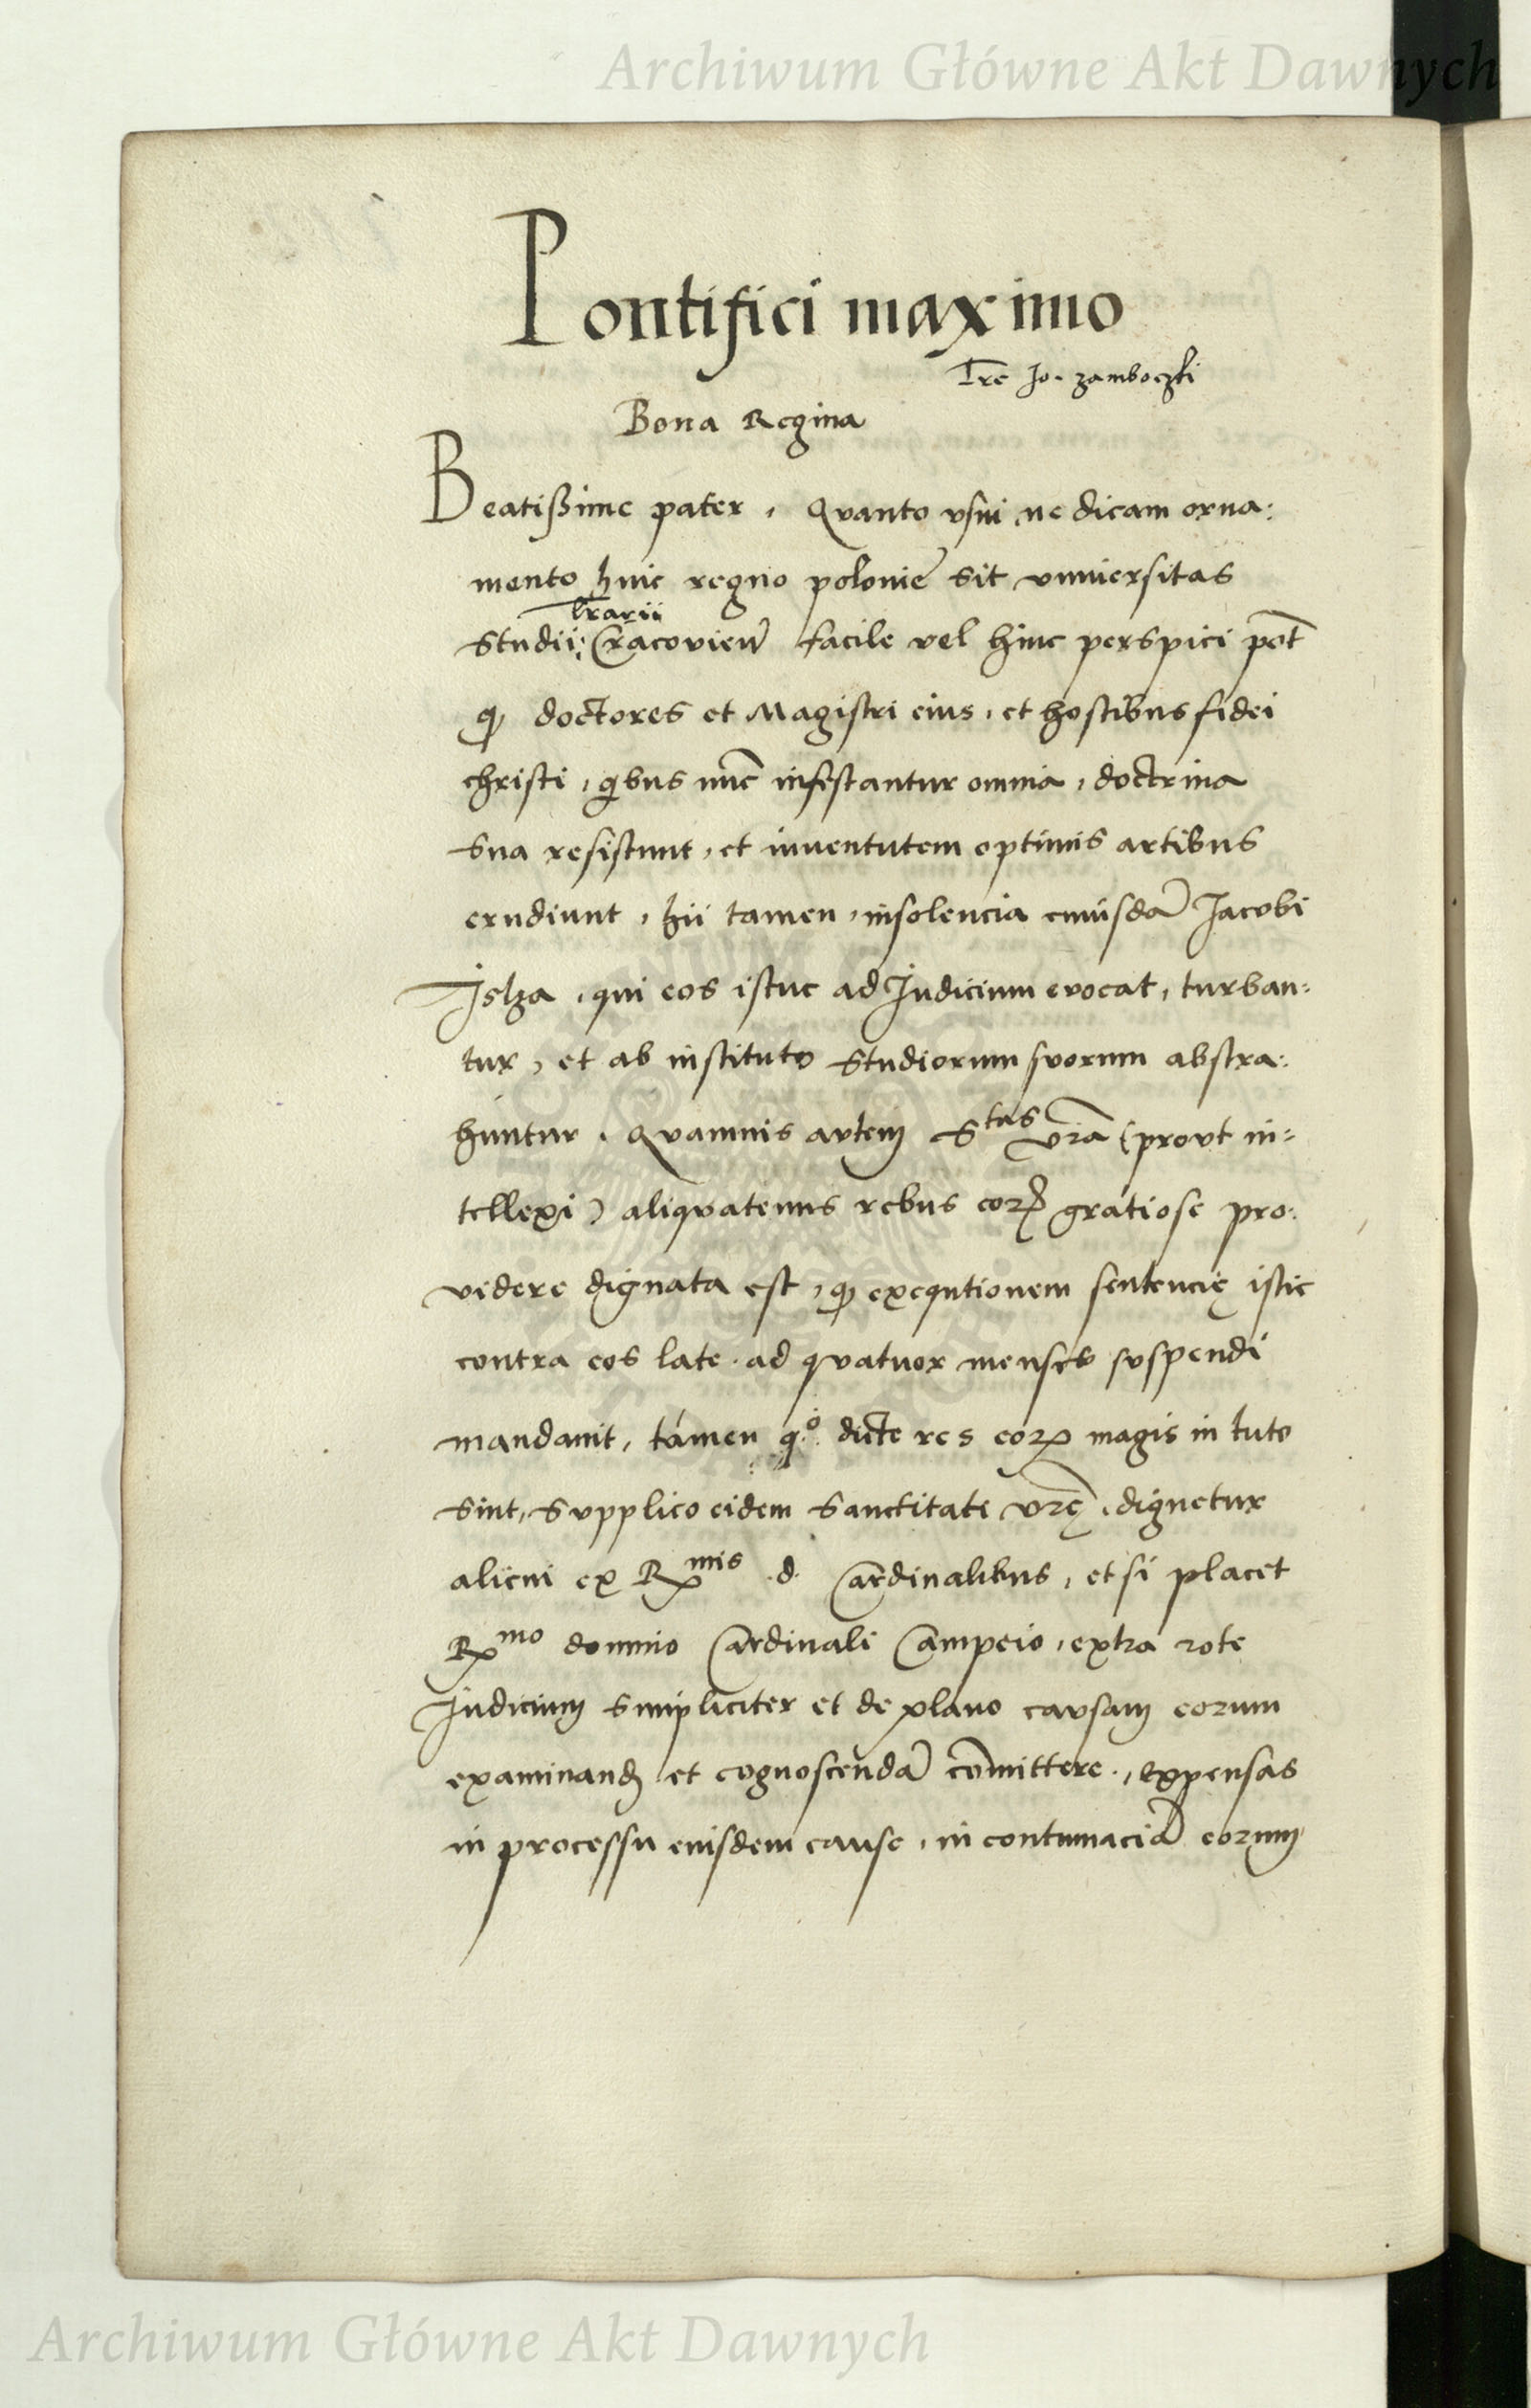 Archiwum Główne Akt Dawnych
Pontifici maximo
Lr̃e Jo. zamboczki
Bona Regina
Beatissime pater, Quanto vsui ne dicam orna:
mento huic regno polonie sit vniuersitas
lr̃arii
Studii Cracovien̄ facile vel hinc perspici pot̄
ꝙ doctores et Magistri eius, et hostibus fidei
christi, qibus nuc̄ infestantur omnia, doctrina
sua resistunt, et iuuentutem optimis artibus
erudiunt, hii tamen, insolencia cuiusdā Jacobi
Jslza, qui eos istuc ad Judicium evocat, turban=
tur, et ab instituto studiorum suorum abstra:
huntur. Quamuis autem Stas vrā (prout in=
tellexi) aliquatenus rebus eoꝝ gratiose pro:
videre dignata est, ꝙ exequtionem sentencię istic
contra eos late. ad quatuor menses suspendi
mandauit, tamen q.o dicte res eoꝝ magis in tuto
sint, supplico eidem sanctitati vrę, dignetur
alicui ex Rmis .d. Cardinalibus, et si placet
Rmo domino Cardinali Campeio, extra rote
Judicium simpliciter et de plano causam eorum
examinand et cognoscendā com̄ittere., expensas
in processu eiusdem cause, in contumaciā eorum
Archiwum Główne Akt Dawnych